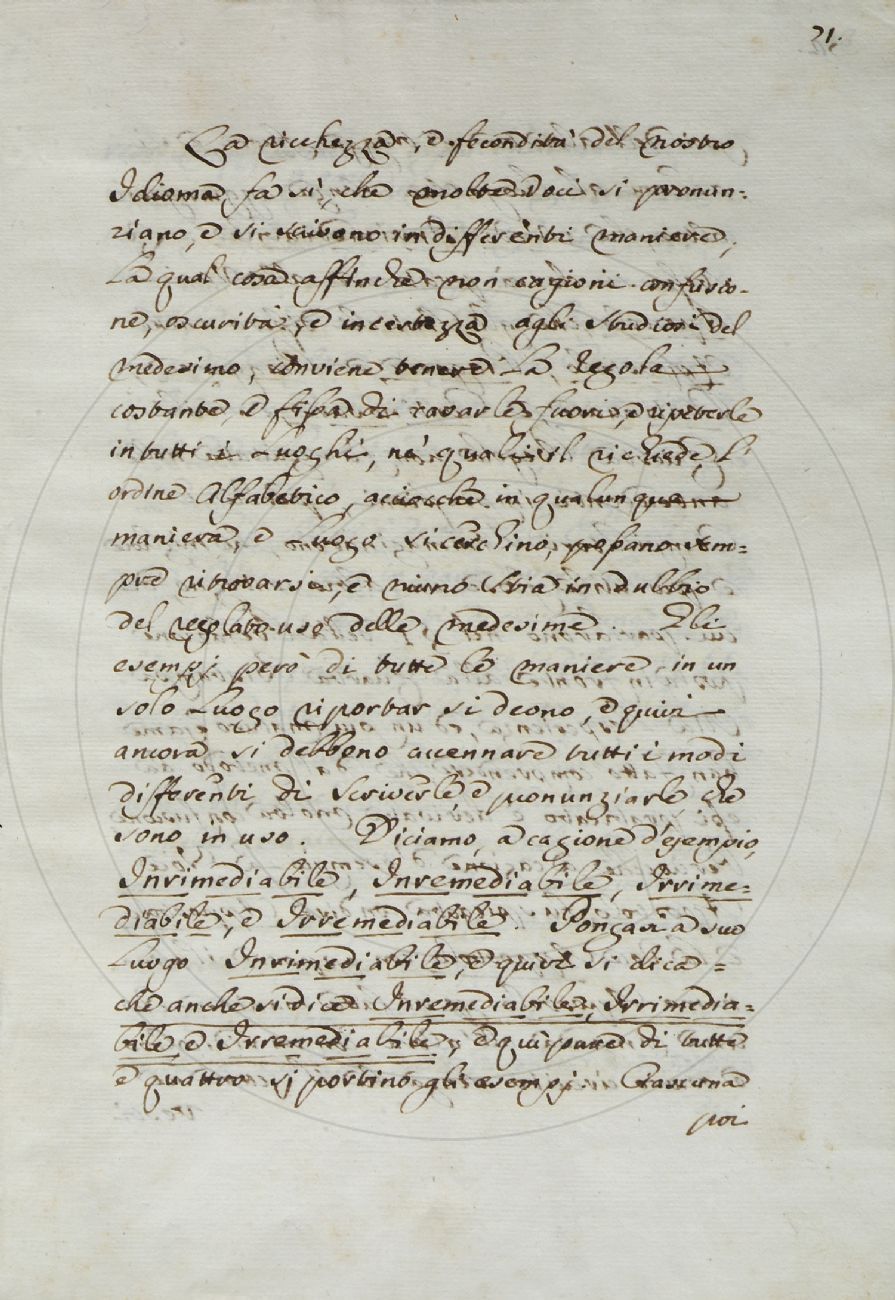 21.
La ricchezza, e fecondità del nostro
Idioma, fa sì, che molte Voci si pronun=
ziano, e si scrivono in differenti maniere,
La qual cosa affinchè non cagioni confusio-
ne, oscurità, e incertezza agli Studiosi del
medesimo, conviene tenere La Regola
costante, e fissa di cavarle fuori, e ripeterle
in tutti i Luoghi, ne' quali il richiede, L'
ordine Alfabetico, acciocchè in qualunque
maniera, e Luogo si cerchino, possano sem=
pre ritrovarsi, e niuno Stia in dubbio
del regolato uso delle medesime. Gli
esempj però di tutte le maniere in un
solo Luogo riportar si deono, e quivi
ancora si debbono accennare tutti i modi
differenti di Scriverle, e pronunziarle che
sono in uso. Diciamo, a cagione d'esempio,
Inrimediabile, Inremediabile, Irrime=
diabile, e Irremediabile. Pongasi a suo
Luogo Inrimediabile, e quivi si dica =
che anche si dice Inremediabile, Irrimedia=
bile e Irremediabile, e quì pure di tutte
e quattro si portino gli esempj. Ciascuna
poi